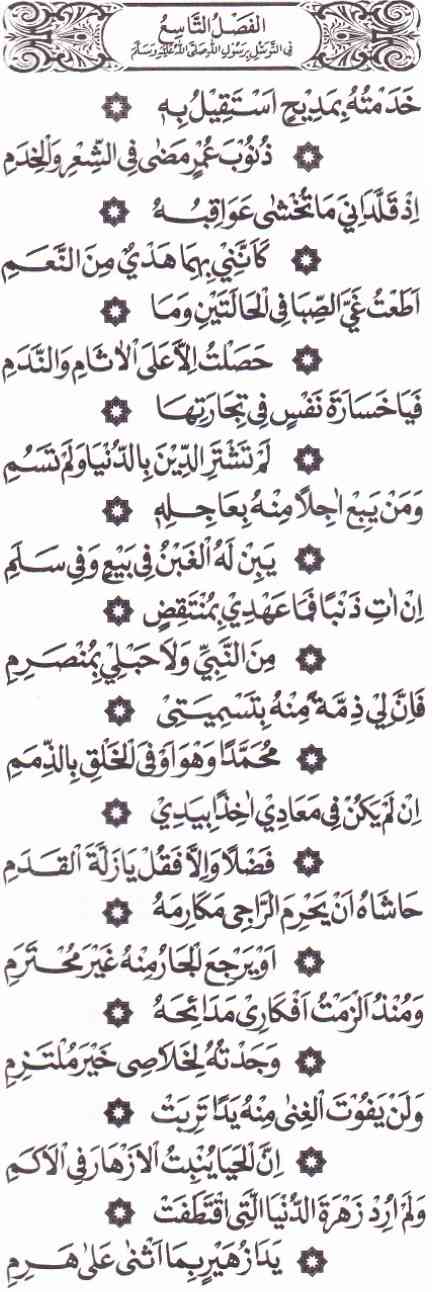 اَلْفَصْلُ التَّاسِعُ
فِي التَّوَسُّلِ بِرَسُولِ اللهِ صَلَّى اللهُ عَلَيْهِ وَسَلَّمَ
خَدَمْتُهُ بِمَدِيحٍ اَسْتَقِيلُ بِهٖ
ذُنُوبَ عُمْرٍ مَضٰى فِي الشِّعْرِ وَالْخِدَمِ
اِذْ قَلَّدَانِيَ مَا تُخْشٰى عَوَاقِبُهُ
كَاَنَّنِي بِهِمَا هَدْيٌ مِنَ النَّعَمِ
اَطَعْتُ غَيَّ الصِّبَا فِي الْحَالَتَيْنِ وَمَا
حَصَلْتُ اِلَّا عَلَى الْاٰثَامِ وَالنَّدَمِ
فَيَا خَسَارَةَ نَفْسٍ فِي تِجَارَتِهَا
لَمْ تَشْتَرِ الدِّينَ بِالدُّنْيَا وَلَمْ تَسُمِ
وَمَنْ يَبِعْ اٰجِلًا مِنْهُ بِعَاجِلِهٖ
يَبِنْ لَهُ الْغَبْنُ فِي بَيْعٍ وَفِي سَلَمِ
اِنْ اٰتِ ذَنْبًا فَمَا عَهْدِي بِمُنْتَقِضٍ
مِنَ النَّبِيِّ وَلَا حَبْلِي بِمُنْصَرِمِ
فَاِنَّ لِي ذِمَّةً مِنْهُ بِتَسْمِيَتِي
مُحَمَّدًا وَهُوَ اَوْفَى الْخَلْقِ بِالذِّمَمِ
اِنْ لَمْ يَكُنْ فِي مَعَادِي اٰخِذًا بِيَدِي
فَضْلًا وَاِلَّا فَقُلْ يَا زَلَّةَ الْقَدَمِ
حَاشَاهُ اَنْ يَحْرِمَ الرَّاجِي مَكَارِمَهُ
اَوْ يَرْجِعَ الْجَارُ مِنْهُ غَيْرَ مُحْتَرَمِ
وَمُنْذُ اَلْزَمْتُ اَفْكَارِي مَدَائِحَهُ
وَجَدْتُهُ لِخَلَاصِي خَيْرَ مُلْتَزِمِ
وَلَنْ يَفُوتَ الْغِنٰى مِنْهُ يَدًا تَرِبَتْ
اِنَّ الْحَيَا يُنْبِتُ الْاَزْهَارَ فِي الْاَكَمِ
وَلَمْ اُرِدْ زَهْرَةَ الدُّنْيَا الَّتِي اقْتَطَفَتْ
يَدَا زُهَيْرٍ بِمَا اَثْنٰى عَلٰى هَرِمِ